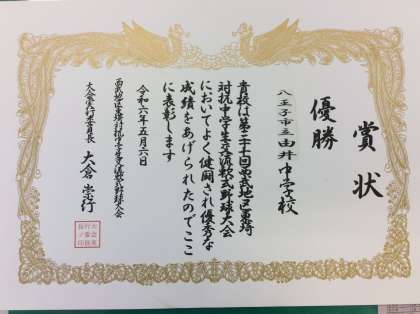 賞状
優勝
八王子市立由井中学校
貴校は第三十七回西武地区東埼
対抗中学生交流軟式野球大会
においてよく健闘され優秀な
成績をあげられたのでここ
に表彰します
令和六年五月六日
西武地区東埼対抗中学生交流軟式野球大会
大会実行委員長 大倉崇行